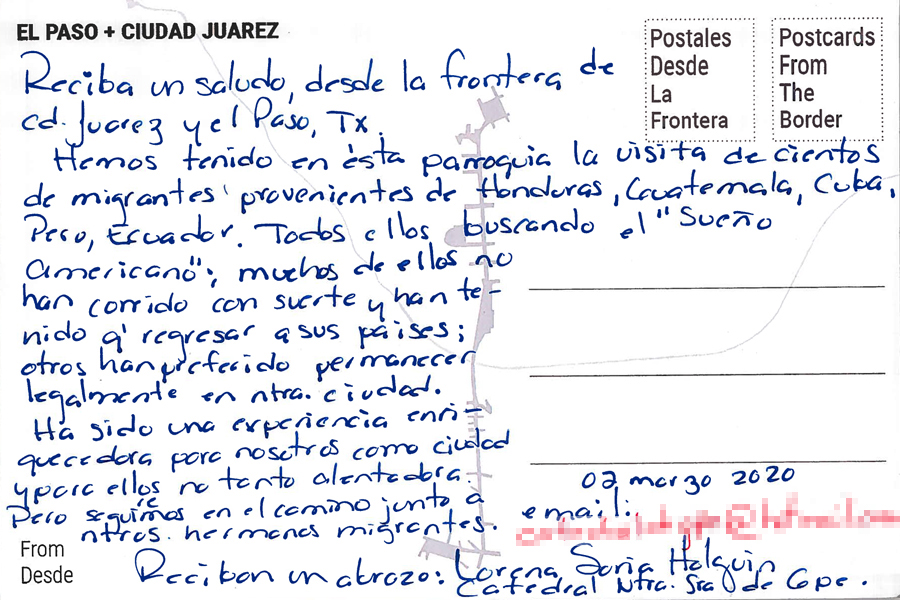 EL PASO + CIUDAD JUAREZ
Postales
Desde
La
Frontera
Postcards
From
The
Border
Reciba un saludo, desde la frontera de
cd. Juarez y el Paso, Tx.
Hemos tenido en ésta parroquia la visita de cientos
de migrantes provenientes de Honduras, Guatemala, Cuba,
Perú, Ecuador. Todos ellos buscando el "Sueño
Americano"; muchos de ellos no
han corrido con suerte y han te-
nido q' regresar a sus países;
otros han preferido permanecer
legalmente en ntra. ciudad.
Ha sido una experiencia enri-
quecedora para nosotros como ciudad
y para ellos no tanto alentadora.
Pero seguiremos en el camino junto a
ntros. hermanos migrantes.
Reciban un abrazo: Lorena Soria Holguin
Catedral Ntra. Sra. de Gpe.
02 marzo 2020
email:
From
Desde